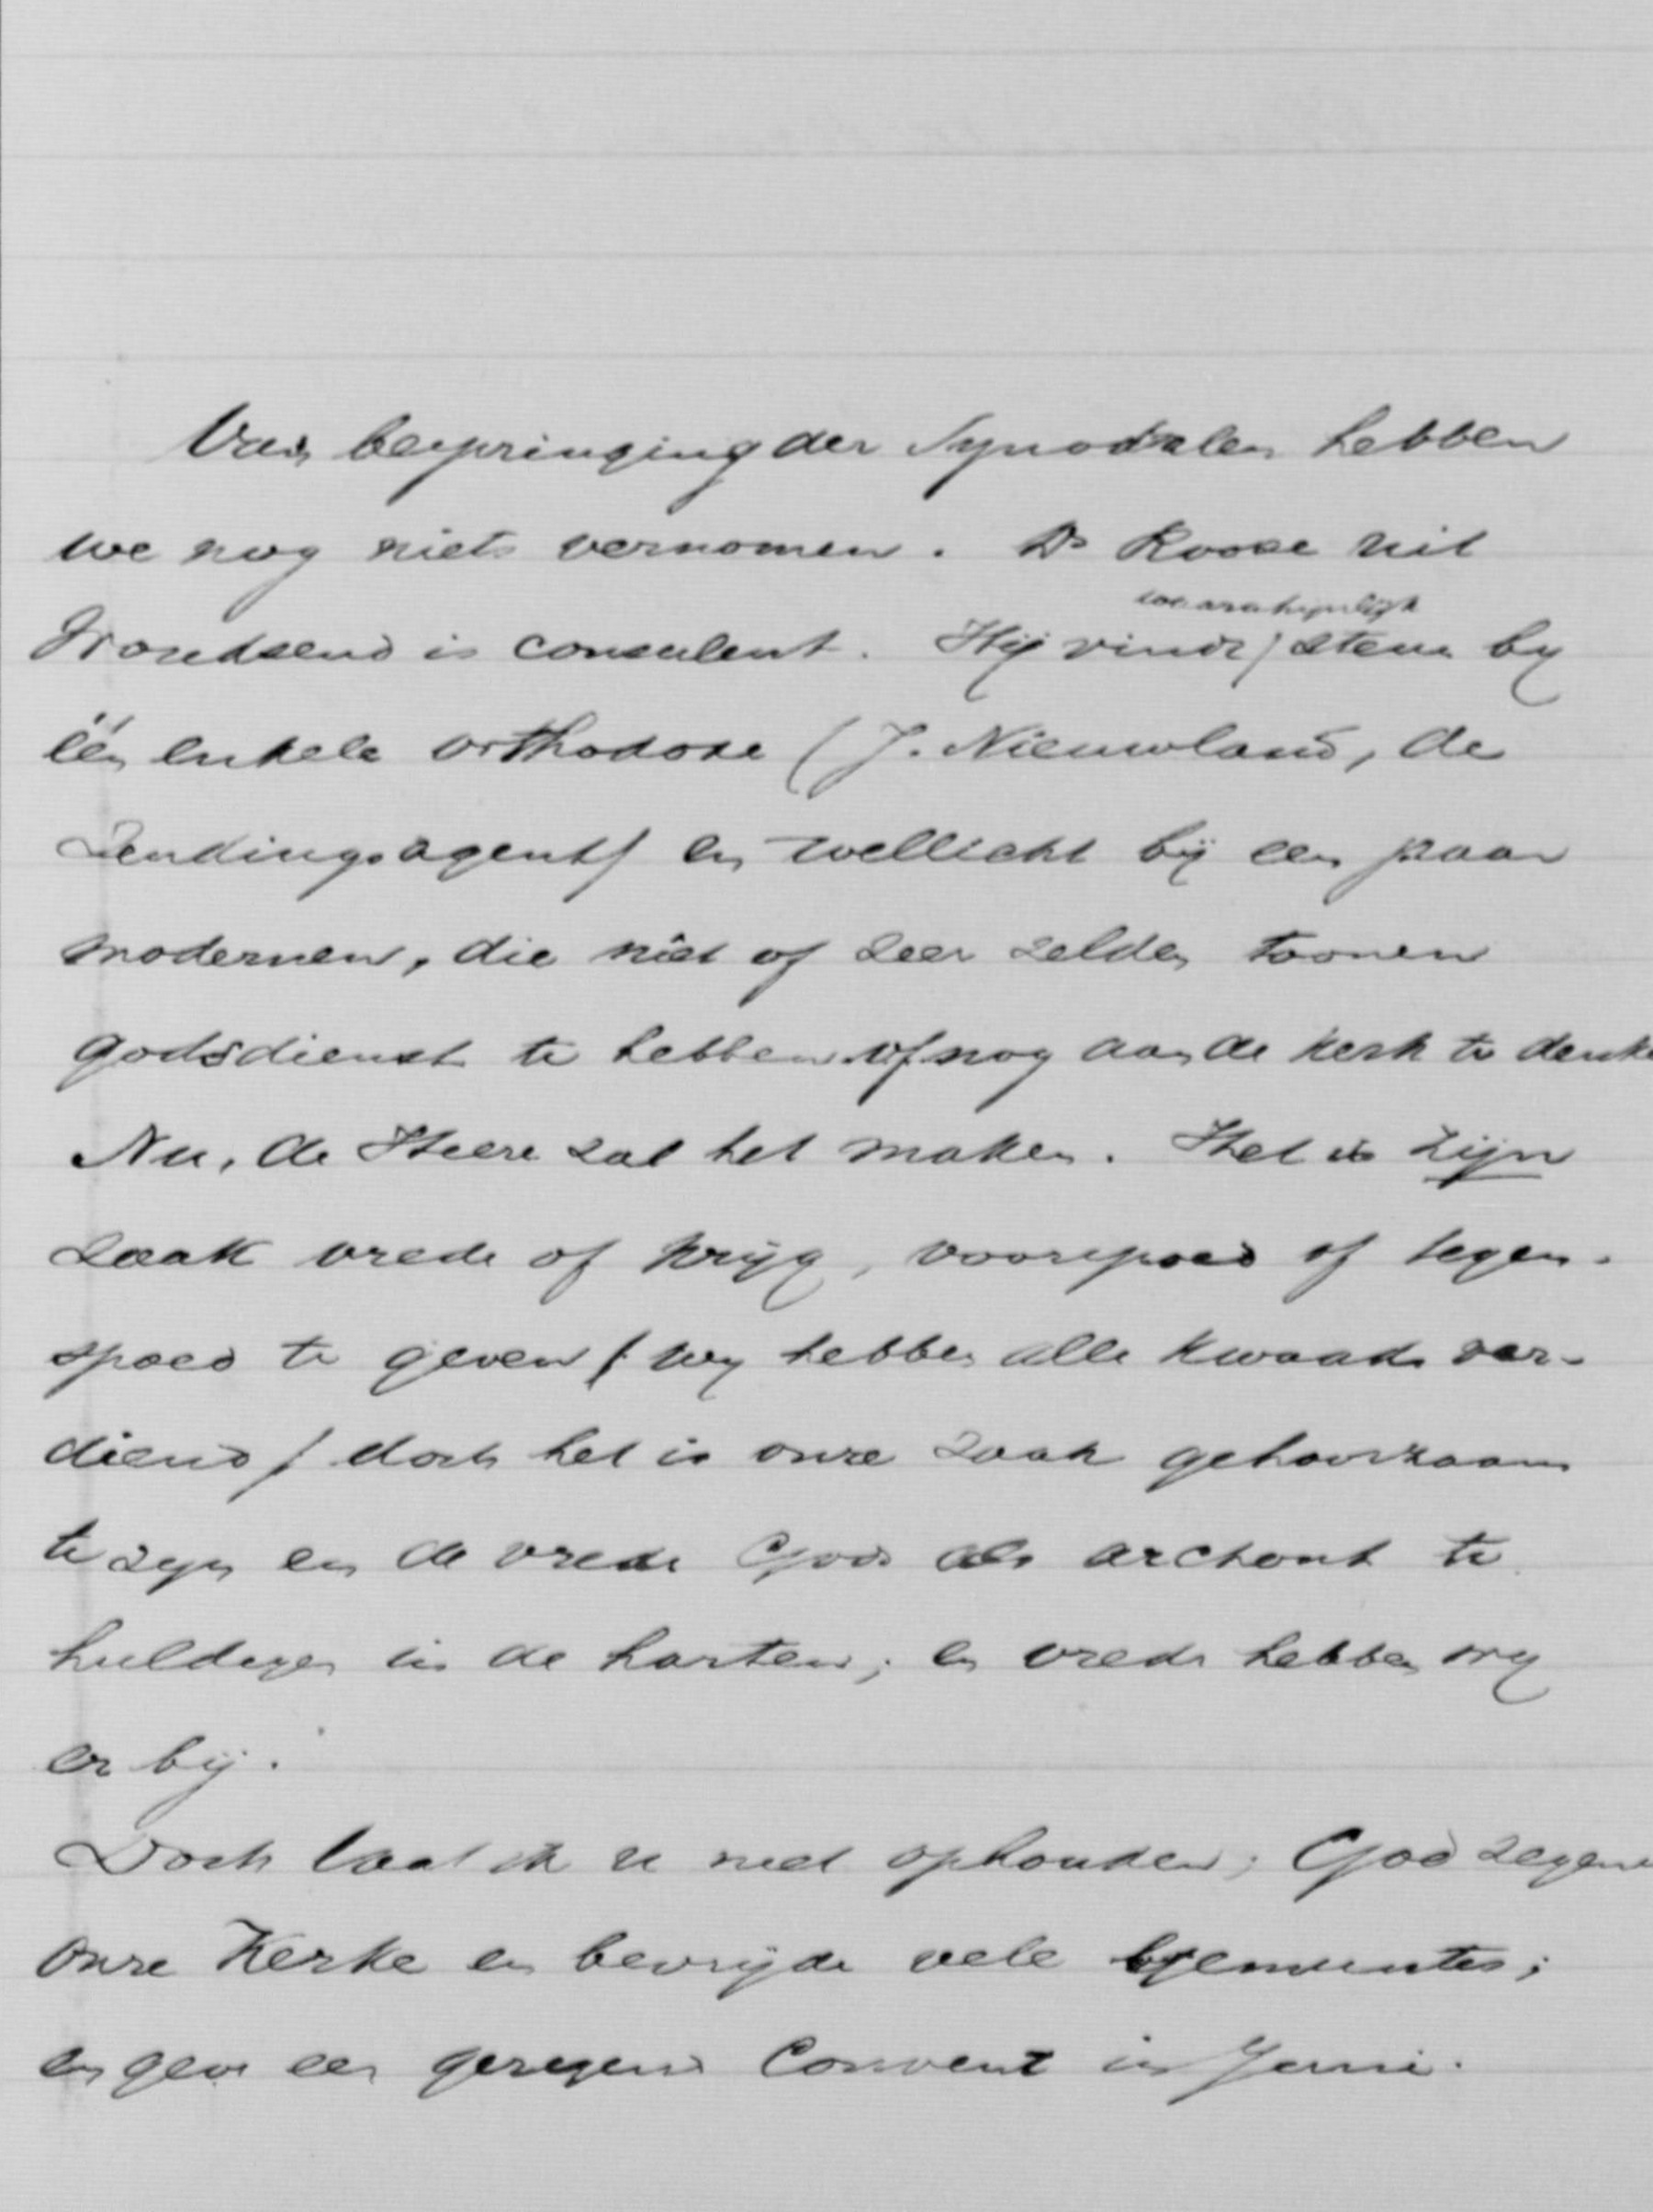 Van bespringing der Synodalen hebben
we nog niets vernomen. Ds Roose uit
waarschijnlijk
Woudsend is consulent. Hij vindt steun by
één enkele orthodoxe (J. Nieuwland, de
Zendingsagent) en wellicht bij een paar
modernen, die niet of zeer zelden toonen
godsdienst te hebben of nog aan de kerk te denke
Nu, de Heere zal het maken. Het is Zijn
zaak vrede of krijg, voorspoed of tegen-
spoed te geven (wy hebben alle kwaads ver-
diend) doch het is onze zaak gehoorzaam
te zyn en de vrede Gods als archont te
huldigen in de harten; en vrede hebben wy
er bij.
Doch laat ik u niet ophouden; God zegene
onze Kerke en bevrijde vele Gemeentes;
en geve een gezegend Convent in Juni.